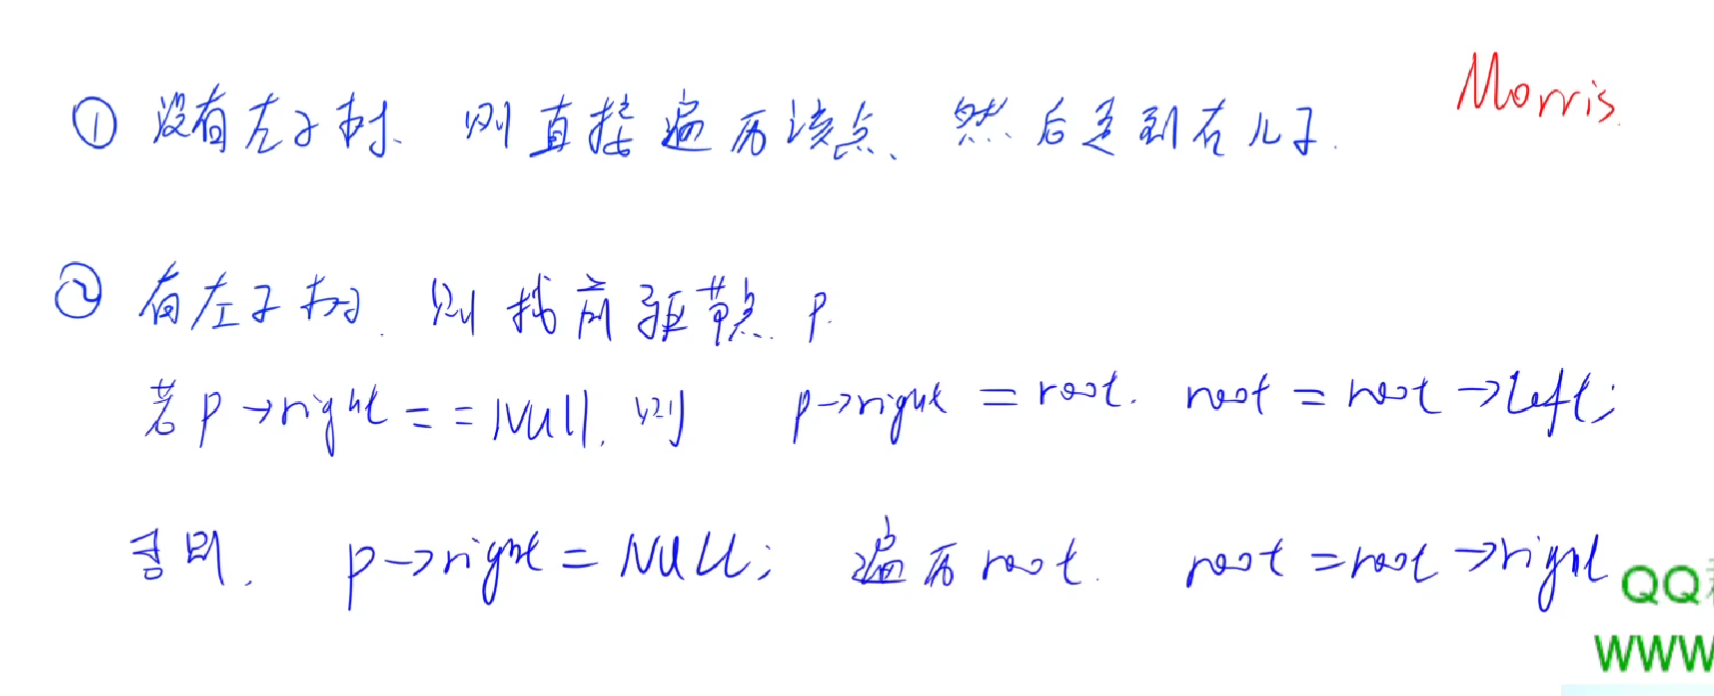 Morris
① 没有左子树、则直接遍历该点、然后走到右儿子.
② 有左子树. 则找前驱节点. P.
若 P→right == NULL, 则 P→right = root. root = root→left;
否则, P→right = NULL; 遍历root. root = root→right
QQ
WWW